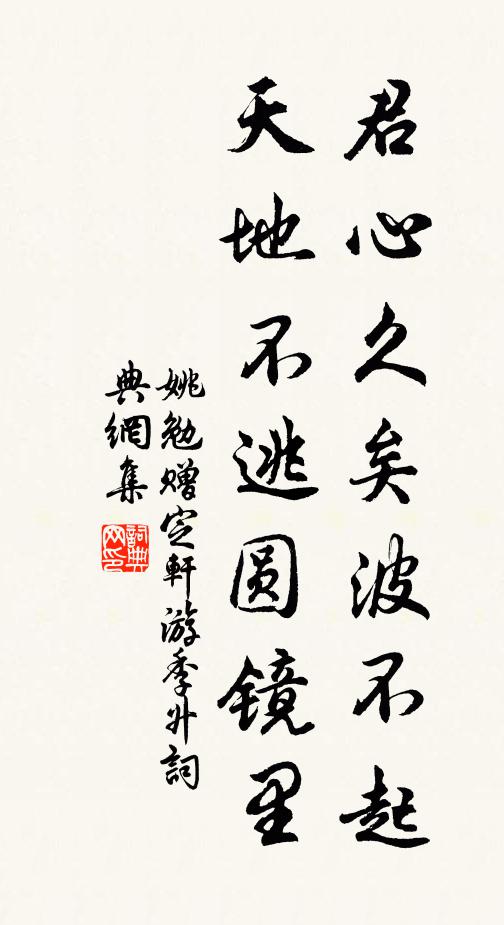 君心久矣波不起
天地不逃圆镜里
姚勉赠定軒游季升詞
典網集
詞典网印